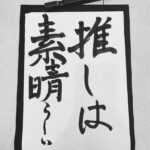 推しは
素晴らしい